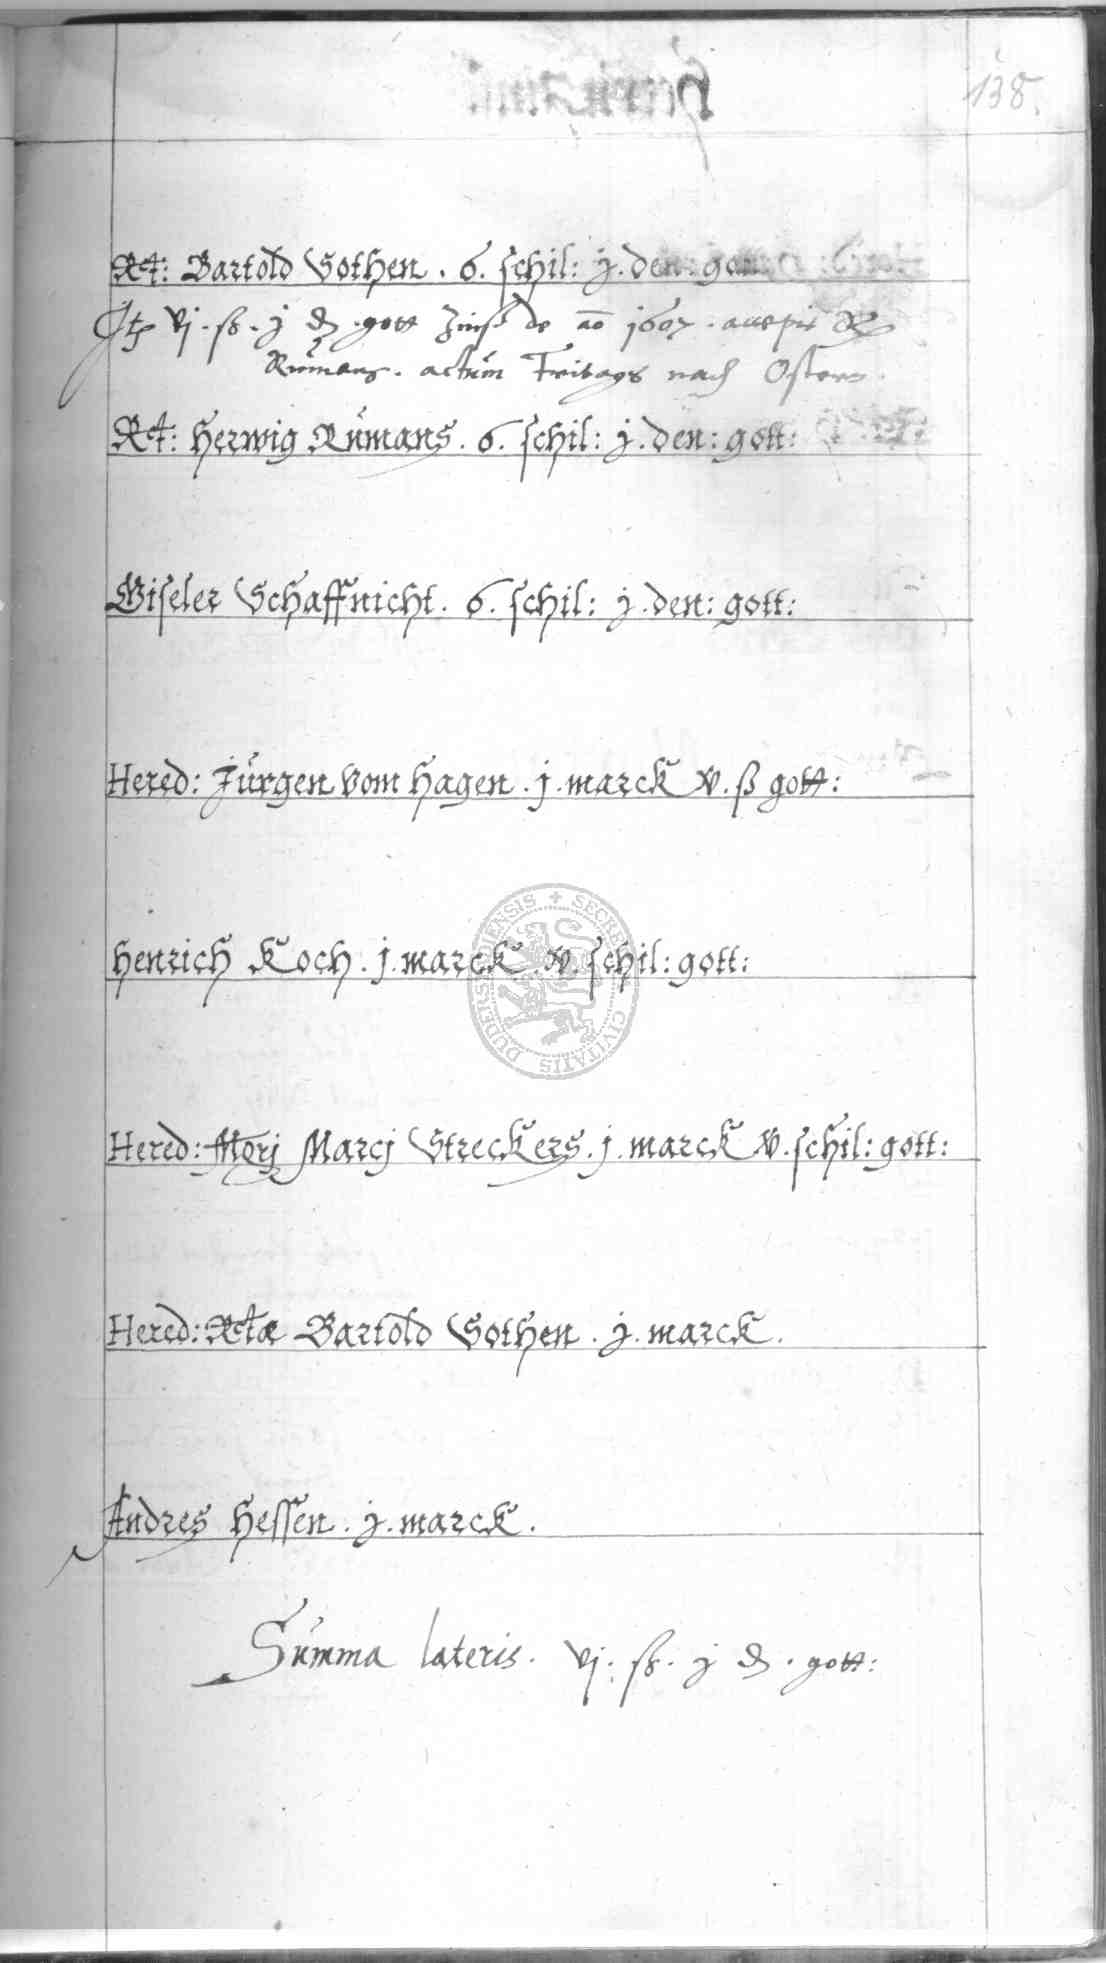 138.
Rct: Bartold Sothen . 6. schil: j. den: gott
Jtz vj . ß . j ₰ . gott Zinß de ao 1607 . accepit R
Rumans . actum Freitags nach Ostern .
Rct: Herwig Rumans . 6. schil: j. den: gott:
Giseler Schaffnicht . 6. schil: j. den: gott:
Hered: Jürgen vom Hagen . j . marck v . ß gott:
Henrich Koch . j. marck . v. schil: gott:
Hered: Morj Marcj Streckers . j. marck v. schil: gott:
Hered: Rctæ Bartold Sothen . j. marck .
Andres Hessen . j. marck .
Summa lateris . vj : ß . j ₰ . gott:
SECRET CIVITATIS DUDERSTADIENSIS